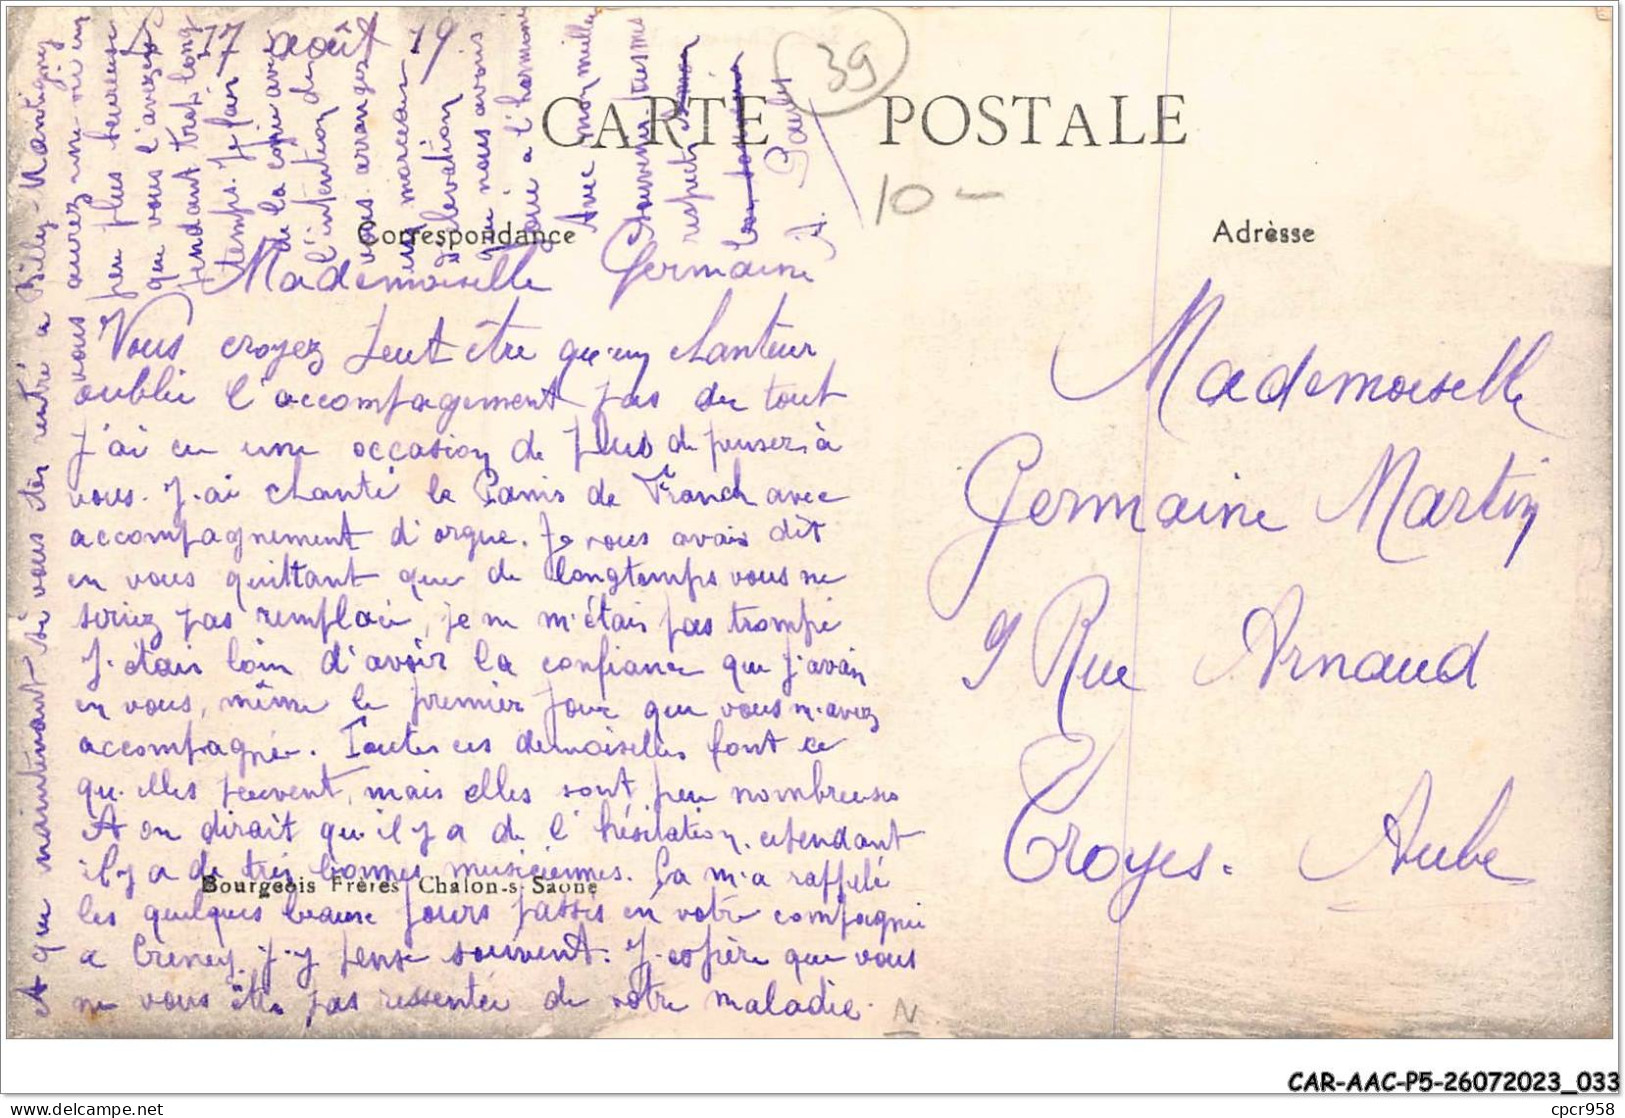 17 août 19
39
CARTE POSTALE
10 -
Correspondance
Adrèsse
Mademoiselle Germaine
Vous croyez peut être qu'un chanteur
oublie l'accompagement pas du tout
j'ai eu une occasion de plus de penser à
vous. J'ai chanté le Panis de Franck avec
accompagnement d'orgue. Je vous avais dit
en vous quittant que de longtemps vous ne
seriez pas remplacée, je ne m'étais pas trompé
J'étais loin d'avoir la confiance que j'avais
en vous, même le premier jour que vous m'avez
accompagné. Toutes ces demoiselles font ce
qu'elles peuvent, mais elles sont peu nombreuses
et on dirait qu'il y a de l'hésitation, cependant
il y a de très bonnes musiciennes. Ça m'a rappelé
Bourgeois Frères Chalon-s-Saone
les quelques beaux jours passés en votre compagnie
a Creney. j'y pense souvent. J'espère que vous
ne vous êtes pas ressentée de votre maladie.
Et que maintenant si vous êtes rentré a Billy-Montigny
vous aurez une vie un
peu plus heureuse
que vous l'avez eu
pendant trop long
temps. Je fais
de la copie avec
l'intention de
vous arranger
un morceau
d'élévation
que nous avons
joué a l'harmonie
Avec mon meilleur
Souvenir tres
respectueux
A. Paulet
Mademoiselle
Germaine Martin
9 Rue Arnaud
Troyes. Aube
N
CAR-AAC-P5-26072023_033
delcampe.net
cpcr958